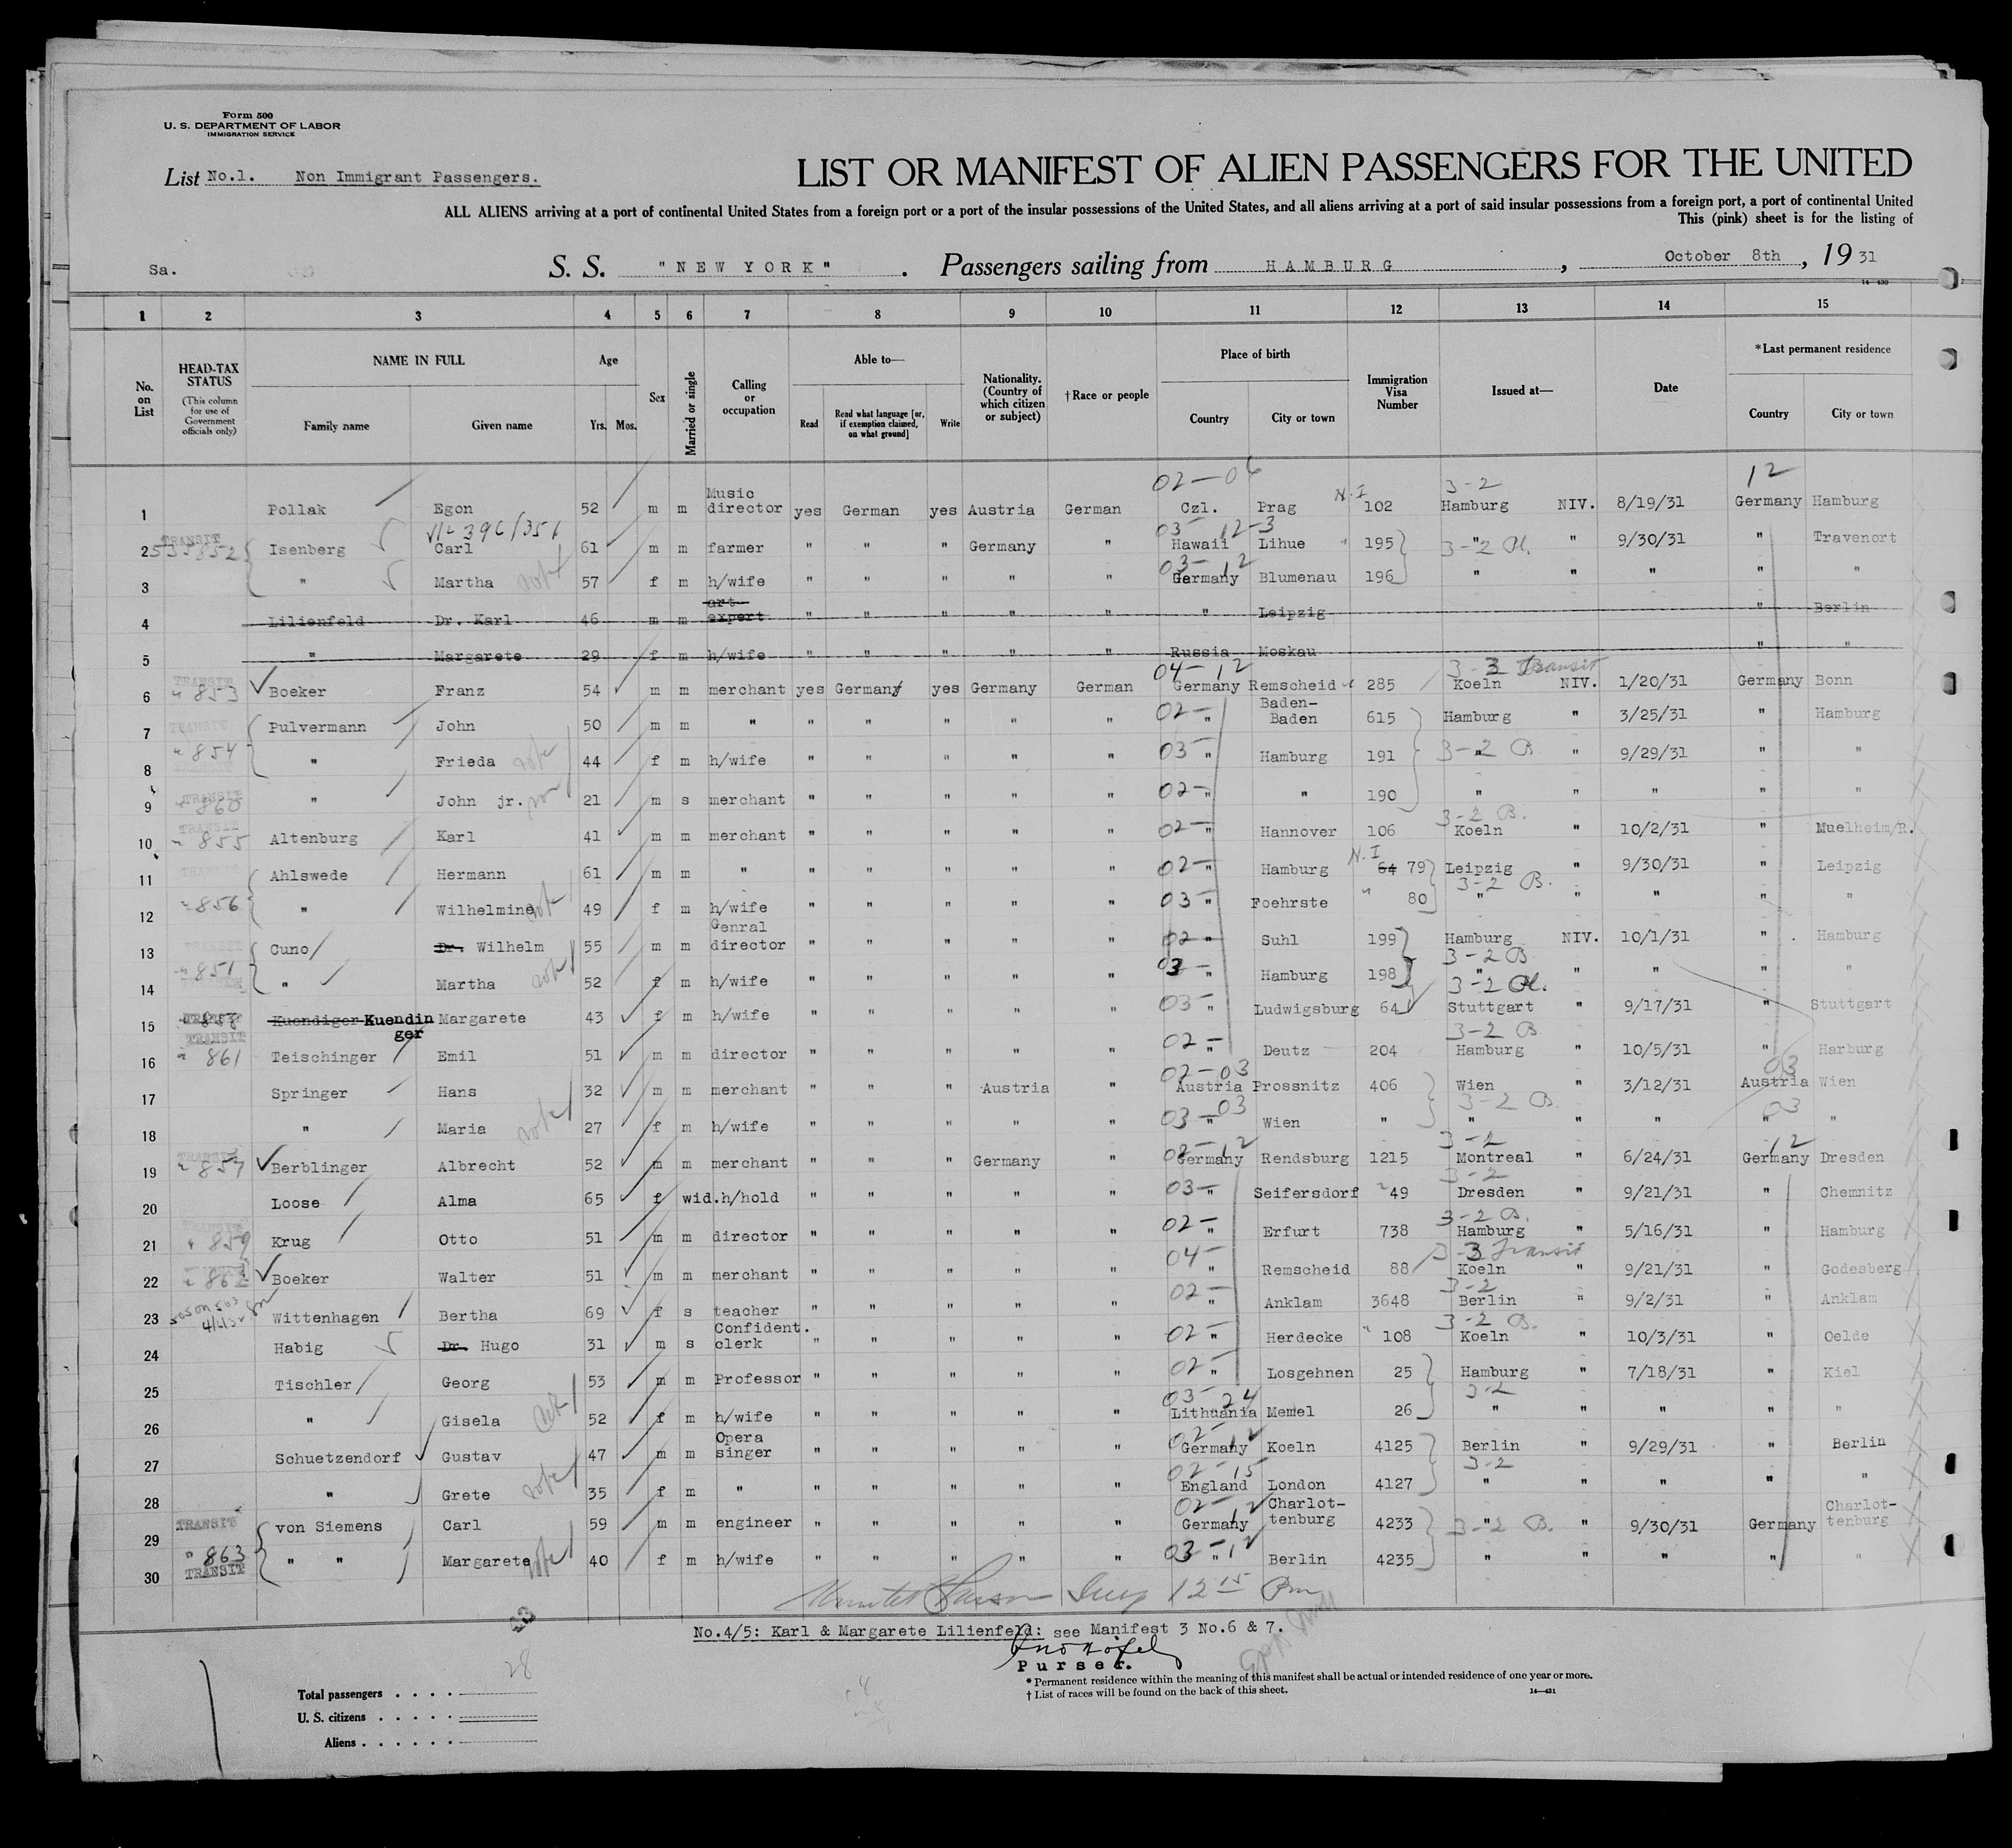 Form 500
U. S. DEPARTMENT OF LABOR
IMMIGRATION SERVICE
List No.1. Non Immigrant Passengers.
LIST OR MANIFEST OF ALIEN PASSENGERS FOR THE UNITED
ALL ALIENS arriving at a port of continental United States from a foreign port or a port of the insular possessions of the United States, and all aliens arriving at a port of said insular possessions from a foreign port, a port of continental United
This (pink) sheet is for the listing of
Sa. S. S. "NEW YORK". Passengers sailing from HAMBURG, October 8th, 1931
14—430
1 2 3 4 5 6 7 8 9 10 11 12 13 14 15
No. on List
HEAD-TAX STATUS
(This column for use of Government officials only)
NAME IN FULL
Family name Given name
Age
Yrs. Mos.
Sex
Married or single
Calling or occupation
Able to—
Read
Read what language [or, if exemption claimed, on what ground]
Write
Nationality. (Country of which citizen or subject)
†Race or people
Place of birth
Country City or town
Immigration Visa Number
Issued at—
Date
*Last permanent residence
Country City or town
02-06 N.I 3-2 12
1 Pollak Egon 52 m m Music director yes German yes Austria German Czl. Prag 102 Hamburg NIV. 8/19/31 Germany Hamburg
03- 12-3
2 TRANSIT 535852 Isenberg Carl 61 m m farmer " " " Germany " Hawaii Lihue 195 3-2 " " 9/30/31 " Travenort
03-12
3 " Martha 57 f m h/wife " " " " " Germany Blumenau 196 " " " " "
4 Lilienfeld Dr. Karl 46 m m art expert " " " " " " Leipzig " Berlin
5 " Margarete 29 f m h/wife " " " " " Russia Moskau " "
04-12 3-3 Transit
6 TRANSIT " 853 Boeker Franz 54 m m merchant yes Germany yes Germany German Germany Remscheid 285 Koeln NIV. 1/20/31 Germany Bonn
7 TRANSIT Pulvermann John 50 m m " " " " " " 02- " Baden-Baden 615 Hamburg " 3/25/31 " Hamburg
8 " 854 " Frieda 44 f m h/wife " " " " " 03 " Hamburg 191 3-2 B. " " 9/29/31 " "
9 TRANSIT " 860 " John jr. 21 m s merchant " " " " " 02- " " 190 " " " " "
3-2 B.
10 TRANSIT " 855 Altenburg Karl 41 m m merchant " " " " " 02- " Hannover 106 Koeln " 10/2/31 " Muelheim/R.
N.I
11 Ahlswede Hermann 61 m m " " " " " " 02- " Hamburg 64 79 Leipzig " 9/30/31 " Leipzig
3-2 B.
12 " 856 " Wilhelmine 49 f m h/wife " " " " " 03- " Foehrste " 80 " " " " "
13 Cuno Dr. Wilhelm 55 m m Genral director " " " " " 02 " Suhl 199 Hamburg NIV. 10/1/31 " Hamburg
3-2 B
14 " 851 " Martha 52 f m h/wife " " " " " 03- " Hamburg 198 " " " " "
3-2
15 TRANSIT 858 Kuendiger Kuendinger Margarete 43 f m h/wife " " " " " 03- " Ludwigsburg 64 Stuttgart " 9/17/31 " Stuttgart
3-2 B
16 TRANSIT " 861 Teischinger Emil 51 m m director " " " " " 02- " Deutz 204 Hamburg " 10/5/31 " Harburg
02-03 03
17 Springer Hans 32 m m merchant " " " Austria " Austria Prossnitz 406 Wien " 3/12/31 Austria Wien
3-2 B.
18 " Maria 27 f m h/wife " " " " " 03-03 " Wien " " " " 03 " "
3-2 12
19 TRANSIT " 857 Berblinger Albrecht 52 m m merchant " " " Germany " Germany Rendsburg 1215 Montreal " 6/24/31 Germany Dresden
3-2
20 Loose Alma 65 f wid. h/hold " " " " " 03- " Seifersdorf 49 Dresden " 9/21/31 " Chemnitz
3-2 B.
21 TRANSIT " 859 Krug Otto 51 m m director " " " " " 02- " Erfurt 738 Hamburg " 5/16/31 " Hamburg
3-3 Transit
22 " 862 Boeker Walter 51 m m merchant " " " " " 04- " Remscheid 88 Koeln " 9/21/31 " Godesberg
3-2
23 Wittenhagen Bertha 69 f s teacher " " " " " 02- " Anklam 3648 Berlin " 9/2/31 " Anklam
3-2 B.
24 Habig Dr. Hugo 31 m s Confident. clerk " " " " " 02- " Herdecke 108 Koeln " 10/3/31 " Oelde
25 Tischler Georg 53 m m Professor " " " " " 02- " Losgehnen 25 Hamburg " 7/18/31 " Kiel
03-24 3-2
26 " Gisela 52 f m h/wife " " " " " Lithuania Memel 26 " " " " "
02-12
27 Schuetzendorf Gustav 47 m m Opera singer " " " " " Germany Koeln 4125 Berlin " 9/29/31 " Berlin
02-15 3-2
28 " Grete 35 f m " " " " " " England London 4127 " " " " "
02-12
29 TRANSIT von Siemens Carl 59 m m engineer " " " " " Germany Charlottenburg 4233 3-2 B. " " 9/30/31 Germany Charlottenburg
30 " 863 TRANSIT " " Margarete 40 f m h/wife " " " " " 03-12 " Berlin 4235 " " " " "
12 15 Pm
No.4/5: Karl & Margarete Lilienfeld: see Manifest 3 No.6 & 7.
Purser.
* Permanent residence within the meaning of this manifest shall be actual or intended residence of one year or more.
† List of races will be found on the back of this sheet.
14—431
28
Total passengers . . . .
U. S. citizens . . . . .
Aliens . . . . . .